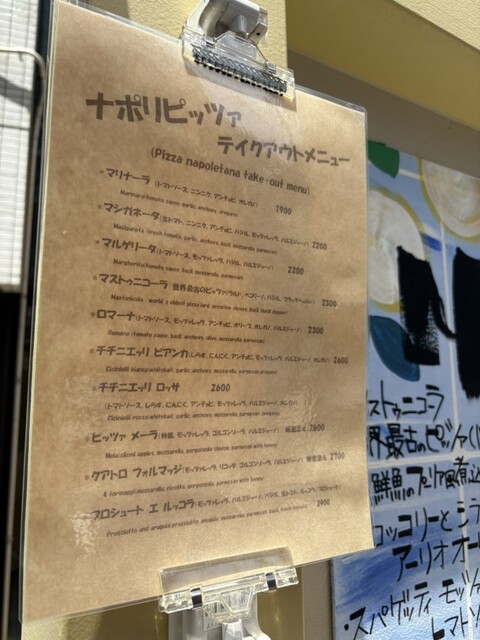 ナポリピッツァ
テイクアウトメニュー
(Pizza napoletana take-out menu)
・マリナーラ (トマトソース、ニンニク、アンチョビ、オレガノ) 1900
Marinara(tomato sauce, garlic, anchovy, oregano)
・マシガネータ (生トマト、ニンニク、アンチョビ、バジル、モッツァレッラ、パルミジャーノ) 2200
garlic, anchovy, basil, mozzarella, parmesan)
・マルゲリータ (トマトソース、モッツァレッラ、バジル、パルミジャーノ) 2200
Margherita(tomato sauce, basil, mozzarella, parmesan)
・マストゥニコーラ 世界最古のピッツァ(ラルド、ペコリーノ、バジル、ブラックペッパー) 2300
・ロマーナ (トマトソース、モッツァレッラ、アンチョビ、オリーブ、オレガノ、パルミジャーノ) 2300
Romana (tomato sauce, mozzarella, anchovy, olive, parmesan)
・チチニエッリ ビアンカ (しらす、にんにく、アンチョビ、モッツァレッラ、パルミジャーノ、オレガノ) 2600
・チチニエッリ ロッサ 2600
(トマトソース、しらす、にんにく、アンチョビ、モッツァレッラ、パルミジャーノ、オレガノ)
・ピッツァ メーラ (林檎、モッツァレッラ、ゴルゴンゾーラ、パルミジャーノ) 蜂蜜添え 2600
Mela(sliced apples, mozzarella, gorgonzola, parmesan) with honey
・クアトロ フォルマッジ (モッツァレッラ、リコッタ、ゴルゴンゾーラ、パルミジャーノ) 蜂蜜添え 2700
4 formaggi(mozzarella, ricotta, gorgonzola, parmesan) with honey
・プロシュート エ ルッコラ (モッツァレッラ、パルミジャーノ、バジル、生トマト、ルッコラ、プロシュート) 2900
ストゥニコーラ
界最古のピッツァ(
鮮魚のプーリア風煮込
コッコリーと シラ
アーリオ オー
・スパゲッティ モッツァ
トマトソ